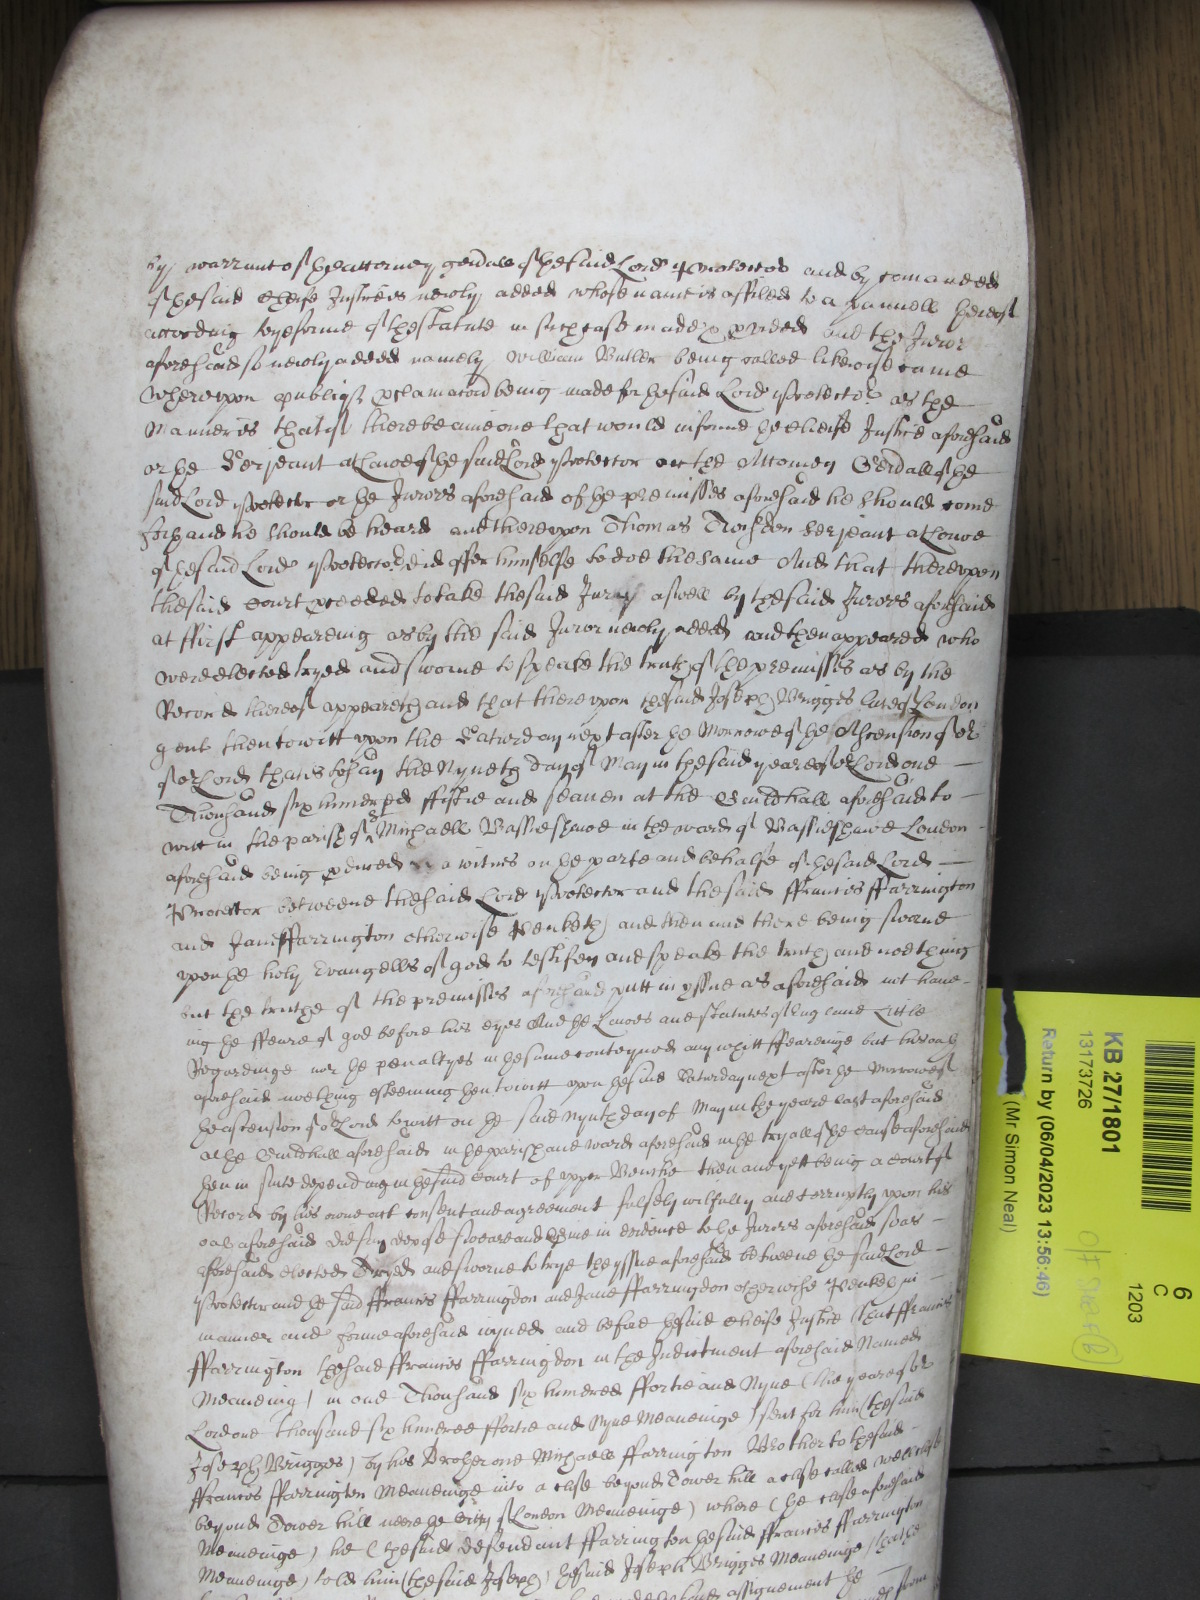 by warrant of the Attorney gen̄all of the said Lord Protector and by comanded
of the said Cheife Justice is newly added whose name is affiled to a pannell hereof
according to the forme of the Statute in such case made & p̱vided and the Juror
aforesaid so newly added namely William Butler being called likewise came
Whereupon publique p̱clamacōn being made for the said Lord Protector as the
Manner is that if there be anie one that would informe the Cheife Justice aforesaid
or the Serjeant at Lawe of the said Lord Protector or the Attorney Gen̄all of the
said Lord Protector or the Jurors aforesaid of the premisses aforesaid he should come
forth and he should be heard and thereupon Thomas Twisden Serjeant at Lawe
of the said Lord Protector did offer himselfe to doe the same And that thereupon
the said Court p̱ceeded to take the said Jury aswell by the said Jurors aforesaid
at ffirst appeareing as by the said Juror newly added and then appeared who
were elected tryed and sworne to speake the truth of the premisses as by the
Record thereof appeareth and that thereupon the said Joseph Brigges late of London
gent then towitt upon the Saturday next after the Morrowe of the Ascension of or
of or Lord that is to say the Nyneth day of May in the said yeare of or Lord one
Thousand six hundred fiftie and seaven at the Guildhall aforesaid to
witt in the parish of St Michaell Bassieshawe in the ward of Bassieshawe London
aforesaid being p̱duced a witnes on the parte and behalfe of the said Lord
Protector betweene the said Lord Protector and the said ffrancis ffarrington
and Jane ffarrington otherwise Penketh and then and there being sworne
upon the holy Evangells of god to testifey and speake the truth and nothing
but the truthe of the premisses aforesaid putt in yssue as aforesaid not have
ing the ffeare of god before his eyes And the Lawes and statutes of England Little
Regardinge nor the penaltyes in the same conteyned any whitt ffeareinge but his oath
aforesaid nothing esteeming then towitt upon the said Saturday next after the Morrowe of
the ascension of or Lord towitt on the said Nynth day of May in the yeare last aforesaid
at the Guildhall aforesaid in the parish and ward aforesaid in the tryall of the cause aforesaid
then in suite depending in the said Court of upper Benche then and yett being a Court of
Record by his owne act consent and agreement falsely wilfully and Corruptly upon his
oath aforesaid did say depose sweare and give in evidence to the Jurors aforesaid soe as
aforesaid elected Tryed and sworne to trye the yssue aforesaid betweene the said Lord
Protector and the said ffrancis ffarringdon and Jane ffarringdon otherwise Penketh in
manner and forme aforesaid ioyned and before the said Cheife Justice (that ffrancis
ffarrington the said ffrancis ffarringdon in the Indictment aforesaid Named
Meaneing) in one Thousand six hundred ffortie and Nyne (the yeare of or
Lord one thousand six hundred ffortie and Nyne Meaneinge) sent for him (the said
Joseph Brigges) by his Brother one Michaell ffarrington Brother to the said
ffrancis ffarrington Meaneinge into a close beyond Tower hill a close called
beyond Tower hill neere the City of London Meaneinge) where (the close aforesaid
Meaneinge) he (the said defendant ffarrington the said ffrancis ffarrington
Meaneinge) told him (the said Joseph) the said Joseph Brigges Meaneinge) that he
assignement he
KB 27/1801
13173726
Return by (06/04/2023 13:56:46)
(Mr Simon Neal)
6
C
1203